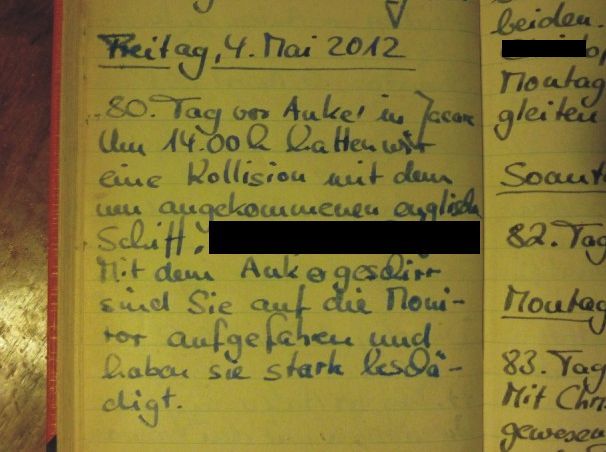 Freitag, 4. Mai 2012
80. Tag vor Anker in Jacare
Um 14.00h hatten wir
eine Kollision mit dem
neu angekommenen englisch
Schiff,
Mit dem Ankergeschirr
sind Sie auf die Moni-
tor aufgefahren und
haben sie stark beschä-
digt.
beiden.
Montag
gleiten
82. Tag
Montag
83. Tag
Mit Chri
gewesen